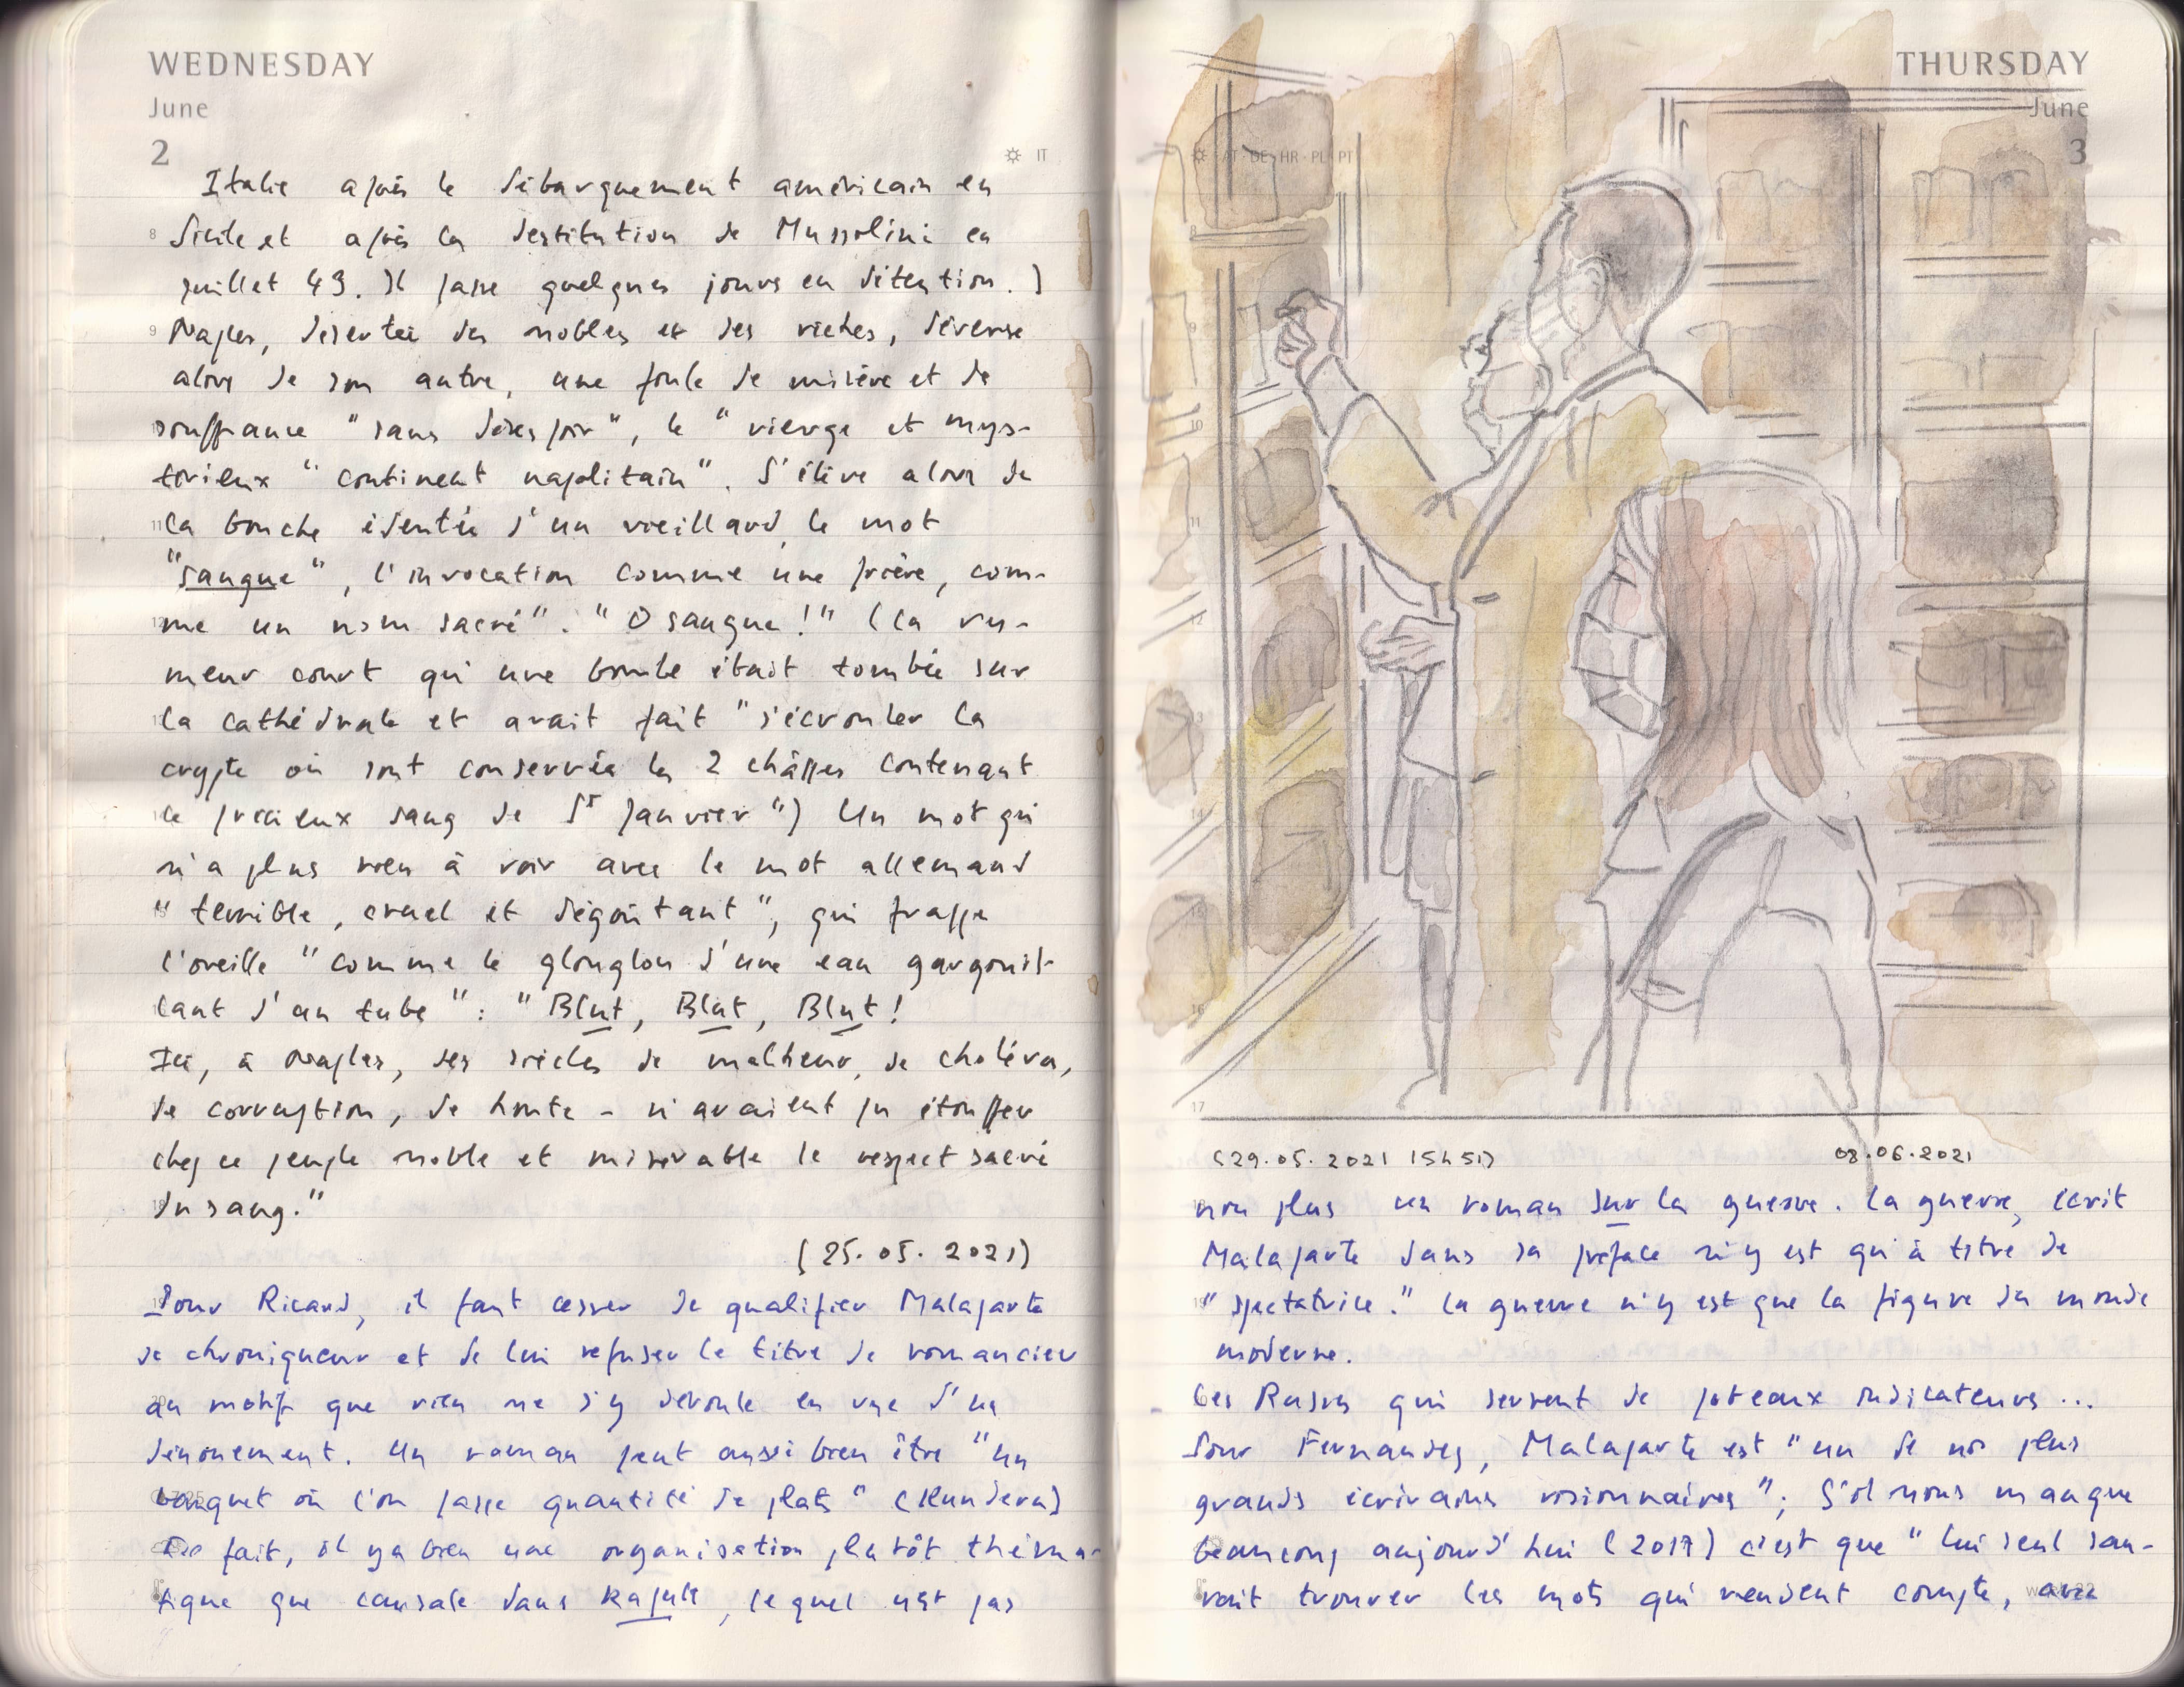 WEDNESDAY
June
2
IT
Italie après le débarquement américain en
8 Sicile et après la destitution de Mussolini en
juillet 43. Il passe quelques jours en détention. )
9 Naples, désertée des nobles et des riches, déverse
alors de son antre, une foule de misère et de
souffrance "sans désespoir", le "vierge et mys-
térieux" continent napolitain". S'élève alors de
11 la bouche édentée d'un vieillard le mot
"sangue", l'invocation comme une prière, com-
me un nom sacré". "O sangue!" (la ru-
meur court qu'une bombe était tombée sur
la cathédrale et avait fait "s'écrouler la
crypte où sont conservées les 2 châsses contenant
le précieux sang de St Janvier") Un mot qui
n'a plus rien à voir avec le mot allemand
"terrible, cruel et dégoûtant", qui frappe
l'oreille "comme le glouglou d'une eau gargouil-
lant d'un tube" : "Blut, Blut, Blut!
Ici, à Naples, des siècles de malheur, de choléra,
de corruption, de honte - n'avaient pu étouffer
chez ce peuple noble et misérable le respect sacré
du sang."
(25.05.2021)
Pour Ricard, il faut cesser de qualifier Malaparte
de chroniqueur et de lui refuser le titre de romancier
au motif que rien ne s'y déroule en vue d'un
dénouement. Un roman peut aussi bien être "un
banquet où l'on passe quantité de plats" (Kundera)
De fait, il y a bien une organisation plutôt théma-
tique que causale dans Kaputt, lequel n'est pas
THURSDAY
June
3
AT · DE · HR · PL · PT
8
9
10
11
12
13
14
16
17
(29.05.2021 15h51)
08.06.2021
non plus un roman sur la guerre. La guerre, écrit
Malaparte dans sa préface n'y est qu'à titre de
"spectatrice." La guerre n'y est que la figure du monde
moderne.
Ces Russes qui servent de poteaux indicateurs...
Pour Fernandez, Malaparte est "un de nos plus
grands écrivains visionnaires"; S'il nous manque
beaucoup aujourd'hui (2017) c'est que "lui seul sau-
rait trouver les mots qui rendent compte, avec